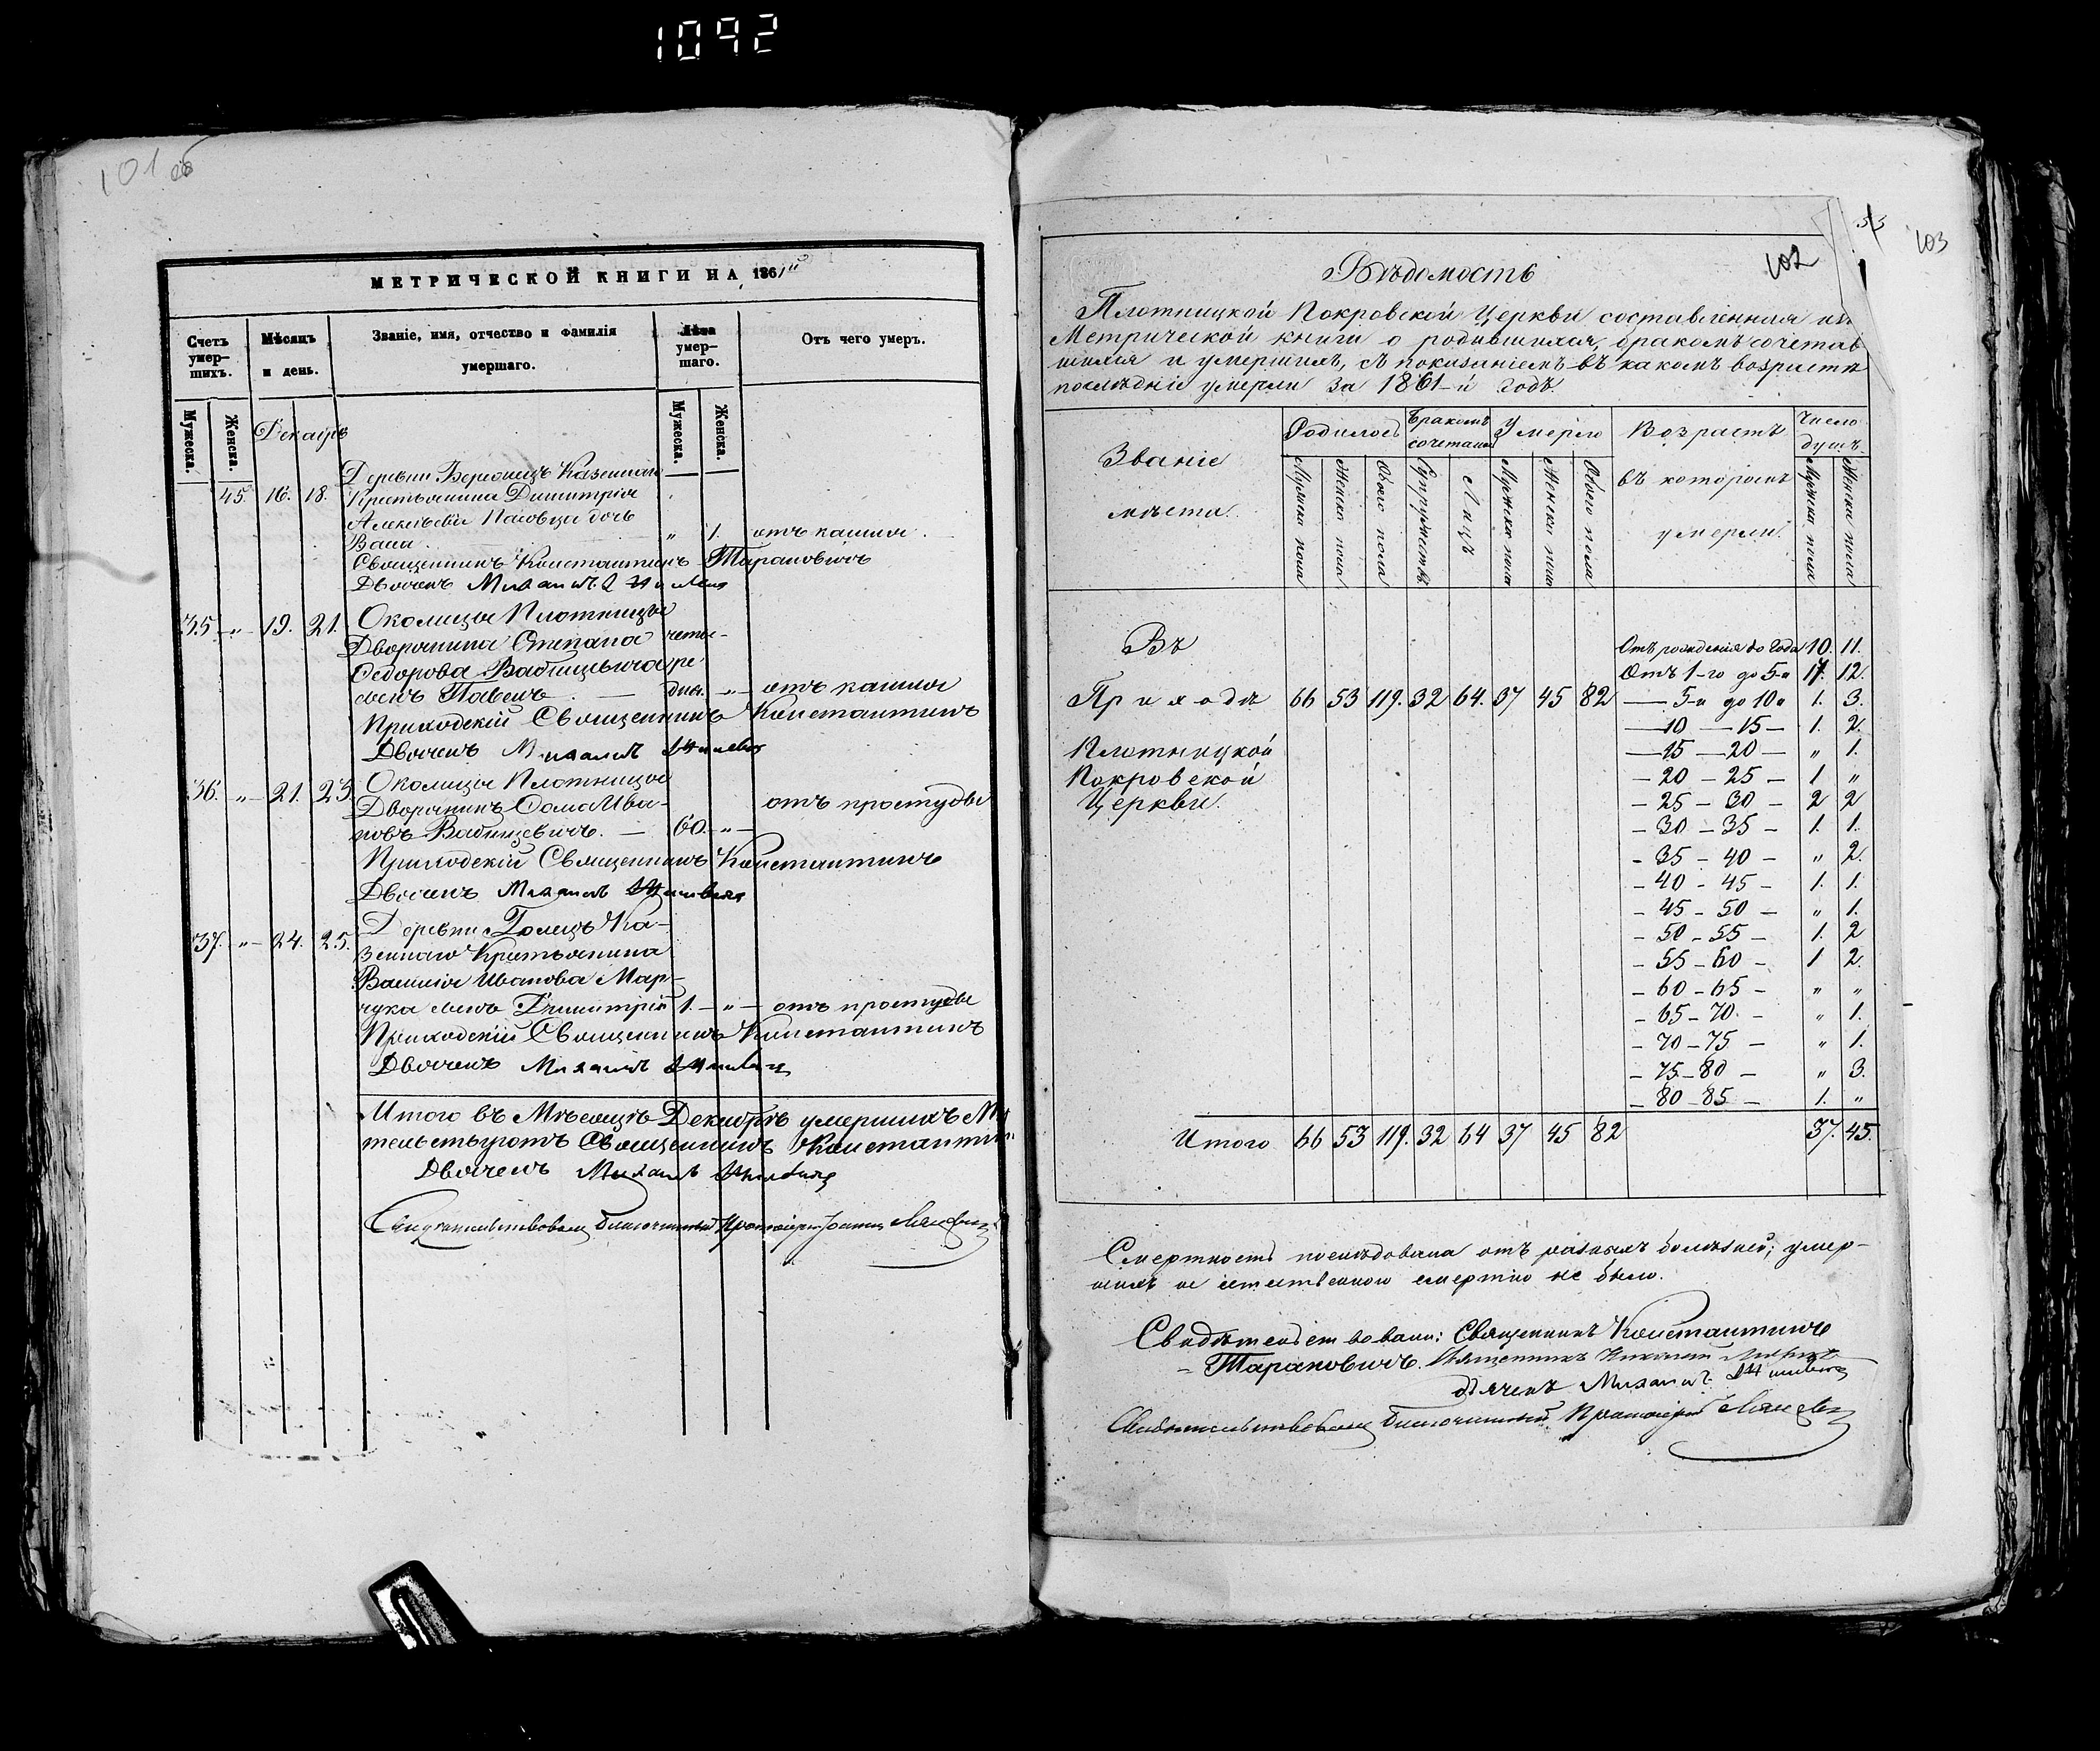 1092
101 об
МЕТРИЧЕСКОЙ КНИГИ НА 1861й
Счетъ умер-шихъ.
Мѣсяцъ и день.
Званіе, имя, отчество и фамилія умершаго.
Лѣта умер-шаго.
Отъ чего умеръ.
Мужеска.
Женска.
Мужеска.
Женска.
Декабрь
Деревни Казеннаго
45. 16. 18. Крестьянина Димитрія
дочь
" 1. отъ кашля.
Священникъ Константинъ Тарановичъ
Дьячекъ Михаилъ
Околицы Плотницы
35 " 19. 21. Дворянина Степана четы-
Ѳедорова ре
сынъ Павелъ. — дня. " — отъ кашля
Приходскій Священникъ Константинъ
Дьячекъ Михаилъ
Околицы Плотницы
36. " 21. 23. Дворянинъ Ѳома Ива- отъ простуды
новъ — 60. " —
Приходскій Священникъ Константинъ
Дьячекъ Михаилъ
Деревни Ка-
37. " 24. 25. зеннаго Крестьянина
Василія Иванова Мар-
чука сынъ Димитрій 1. — " — отъ простуды
Приходскій Священникъ Константинъ
Дьячекъ Михаилъ
Итого въ Мѣсяцѣ Декабрѣ умершихъ
Священникъ Константинъ
Дьячекъ Михаилъ
благочинный Протоіерей
102
33
103
Вѣдомость
Плотницкой Покровской Церкви составленная изъ
Метрической книги о родившихся, бракомъ сочетав
шихся и умершихъ, съ показаніемъ въ какомъ возрастѣ
послѣдніе умерли за 1861-й годъ.
Званіе мѣста.
Родилось
Бракомъ сочетались
Умерло
Возрастъ въ которомъ умерли.
Число душъ.
Мужска пола
Женска пола
Обоего пола
Супружествъ
Лицъ
Мужска пола
Женска пола
Обоего пола
Мужска пола
Женска пола
Въ
Отъ рожденія до года 10. 11.
Отъ 1-го до 5-и 17. 12.
Приходѣ 66 53 119. 32 64. 37 45 82 — 5-и до 10и 1. 3.
— 10 — 15 — 1. 2.
Плотницкой — 15 — 20 — " 1.
Покровской — 20 — 25 — 1 "
Церкви. — 25 — 30 — 2 2
— 30 — 35 — 1. 1.
— 35 — 40 — " 2.
— 40 — 45 — 1. 1.
— 45 — 50 — " 1.
— 50 — 55 — 1. 2
— 55 — 60 — 1 2.
— 60 — 65 — " "
— 65 — 70. — " 1.
— 70 — 75 — " 1.
— 75 — 80 — " 3.
— 80 — 85 — 1. "
Итого 66 53 119. 32 64 37 45 82 37. 45.
Смертность послѣдовала отъ разныхъ болѣзней; умер-
шихъ не естественною смертію не было.
Свидѣтельствовали: Священникъ Константинъ
Тарановичъ. Священникъ Николай
дьячекъ Михаилъ
Свидѣтельствовалъ благочинный Протоіерей